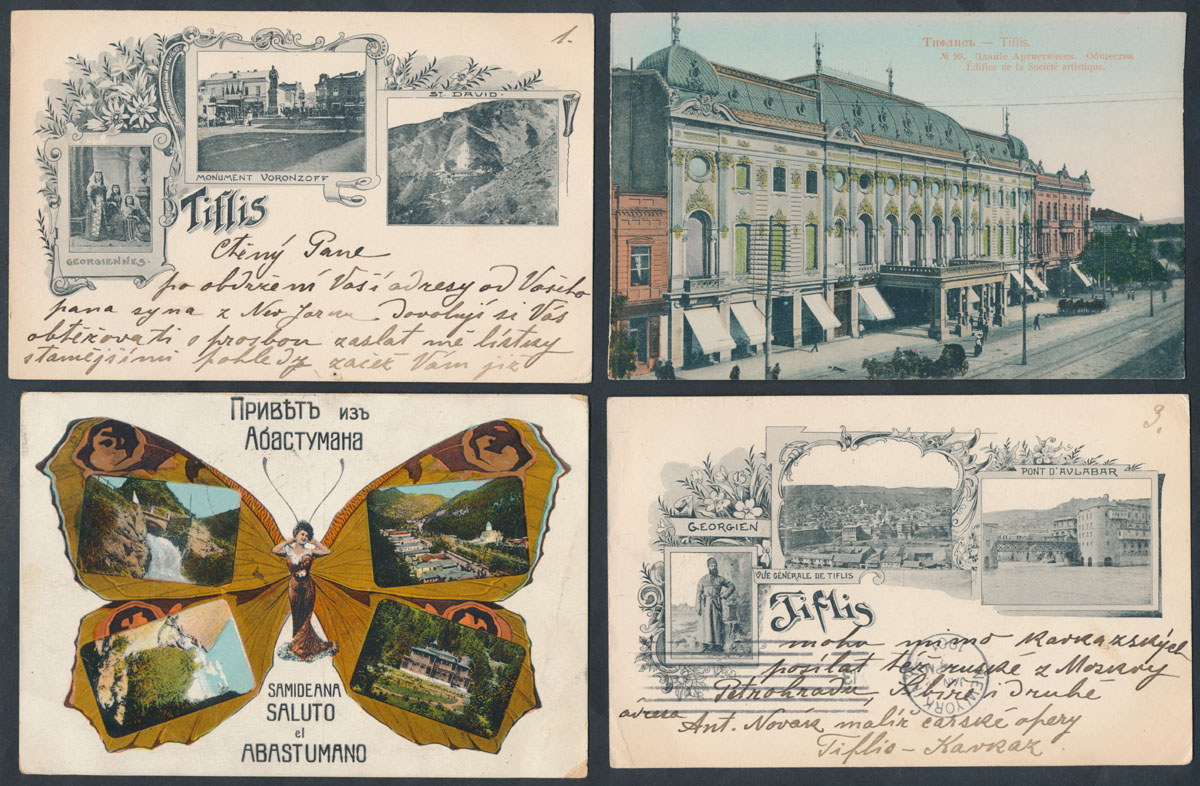 1.
ST. DAVID.
MONUMENT VORONZOFF
Tiflis
GEORGIENNES.
Ctěný Pane
po obdržení Vaší adresy od Vašeho
pana syna z New Jorku Dovoluji si Vás
obtěžovati s prosbou zaslat mě lístky
stamějšími pohledy začež Vám již
Тифлисъ — Tiflis.
№ 90. Зданіе Артистическ. Общества
Edifice de la Société artistique.
Привѣтъ изъ
Абастумана
SAMIDEANA
SALUTO
el
ABASTUMANO
3.
PONT D'AVLABAR
GEORGIEN
VUE GÉNÉRALE DE TIFLIS
Tiflis
mohu mimo Kavkazských
posílat též ruské z Moskvy
Petrohradu, Sibire i druhé
adresa
Ant. Novák malíř carské opery
Tiflis - Kavkaz.
NEW YORK
JAN